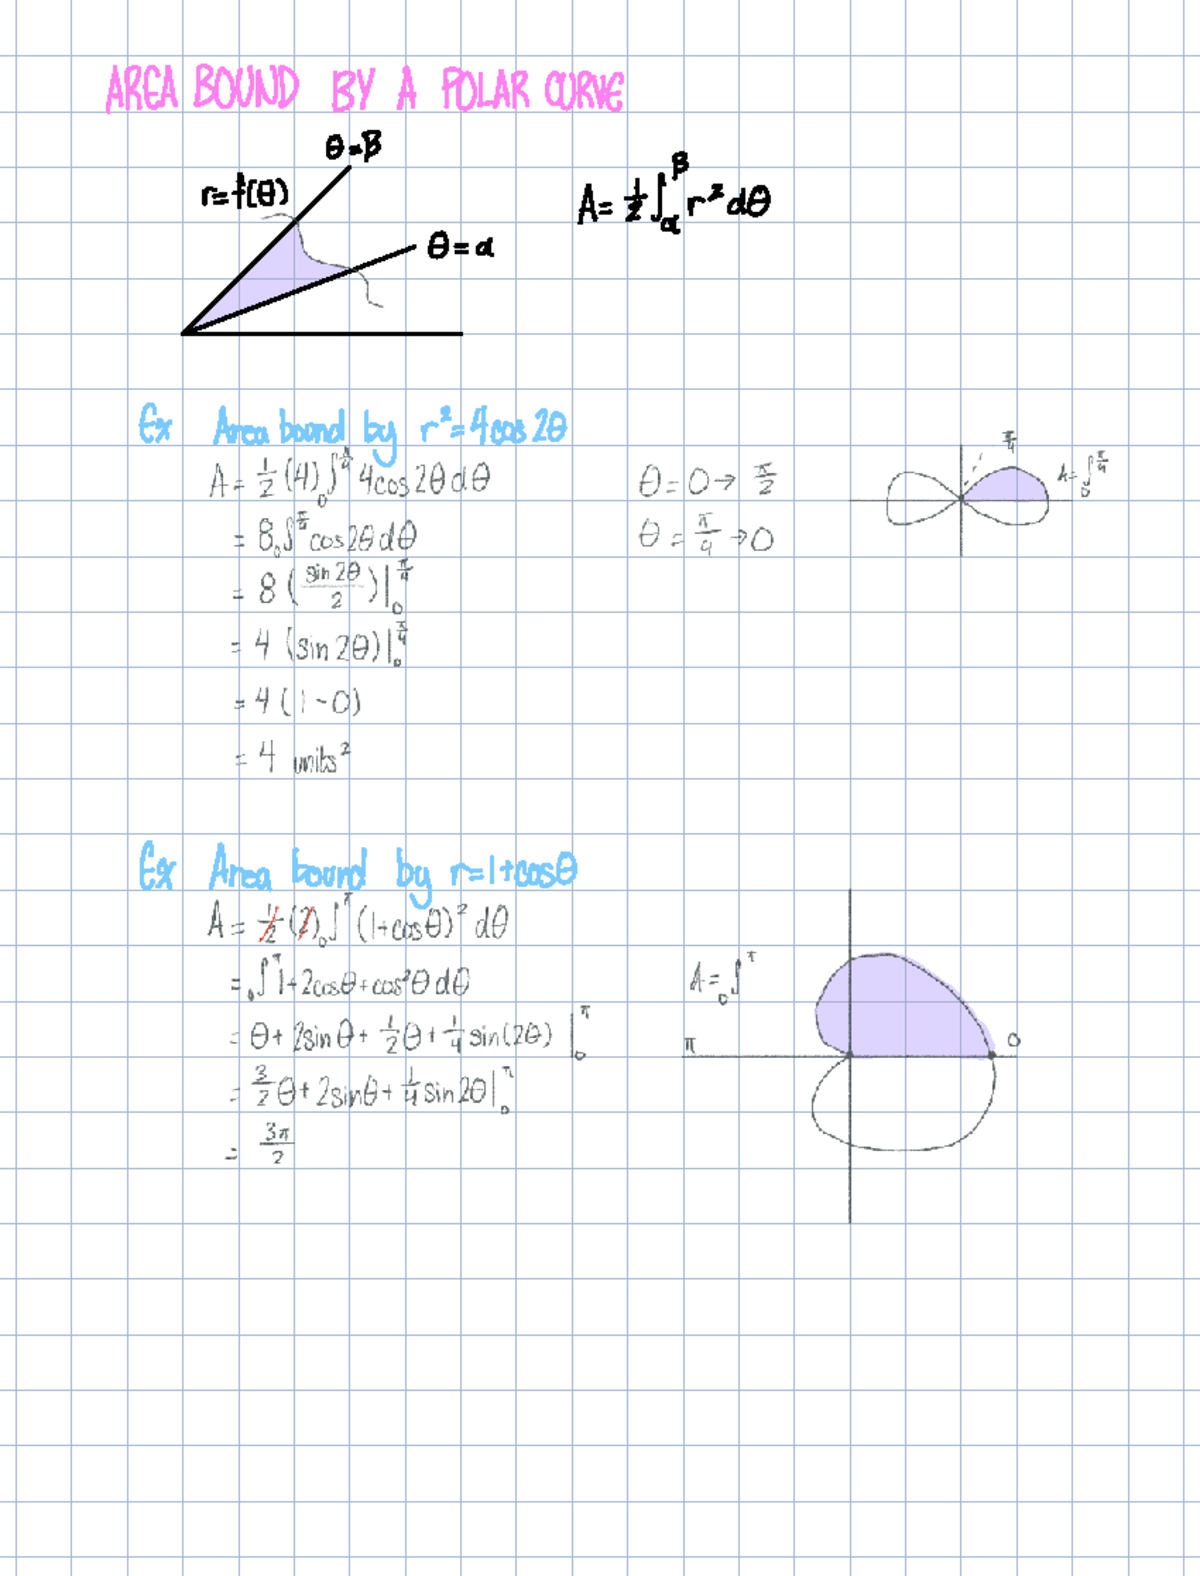 AREA BOUND BY A POLAR CURVE
θ=β
r=f(θ)
A=½∫_α^β r²dθ
θ=α
Ex Area bound by r²=4cos2θ
A=½(4)₀∫^{π/4} 4cos2θdθ
θ=0→π/2
π/4
A=₀∫^{π/4}
=8₀∫^{π/4}cos2θdθ
θ=π/4→0
=8(sin2θ/2)|₀^{π/4}
=4(sin2θ)|₀^{π/4}
=4(1-0)
=4 units²
Ex Area bound by r=1+cosθ
A=½(2)₀∫^π(1+cosθ)²dθ
=₀∫^π 1+2cosθ+cos²θdθ
A=₀∫^π
=θ+2sinθ+½θ+¼sin(2θ)|₀^π
π
0
=3/2θ+2sinθ+¼sin2θ|₀^π
=3π/2